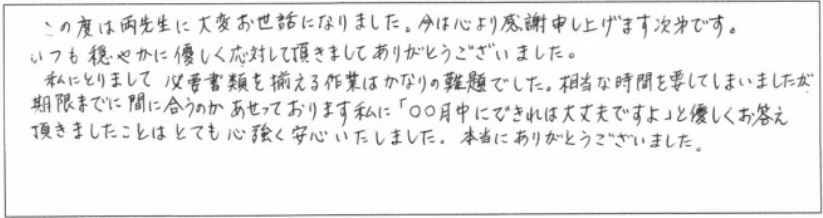 この度は両先生に大変お世話になりました。今は心より感謝申し上げます次第です。
いつも穏やかに優しく応対して頂きましてありがとうございました。
私にとりまして必要書類を揃える作業はかなりの難題でした。相当な時間を要してしまいましたが
期限までに間に合うのかあせっております私に「〇〇月中にできれば大丈夫ですよ」と優しくお答え
頂きましたことはとても心強く安心いたしました。本当にありがとうございました。